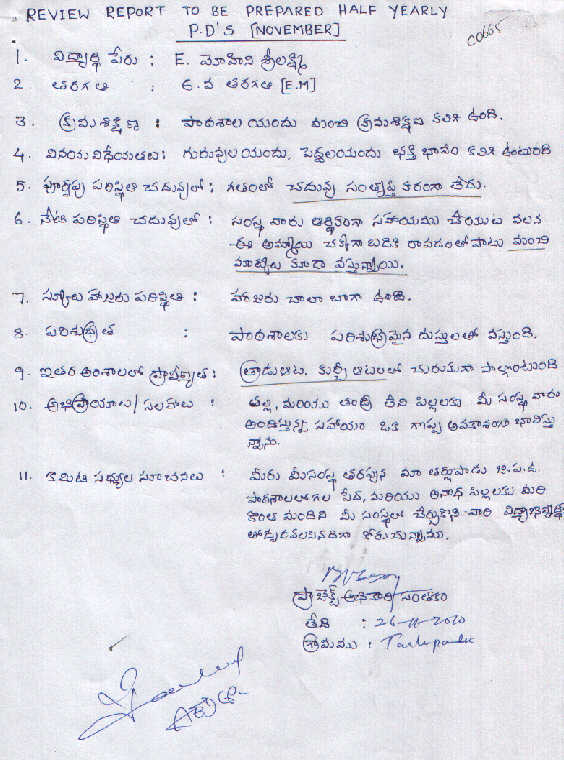 REVIEW REPORT TO BE PREPARED HALF YEARLY
P.D'S [NOVEMBER]
C0665
1. విద్యార్థి పేరు : E. మోహిని శ్రీలక్ష్మి
2 తరగతి : 6వ తరగతి [E.M]
3. క్రమశిక్షణ : పాఠశాల యందు మంచి క్రమశిక్షణ కలిగి ఉంది.
4. వినయవిధేయతలు : గురువుల యందు, పెద్దలయందు భక్తి భావం కలిగి ఉంటుంది
5. పూర్వపు పరిస్థితి చదువులో : గతంలో చదువు సంతృప్తి కరంగా లేదు.
6. నేటి పరిస్థితి చదువులో : సంస్థ వారు ఆర్థికంగా సహాయము చేయుట వలన
ఈ అమ్మాయి చక్కగా బడికి రావడంతో పాటు మంచి
మార్కులు కూడా వస్తున్నాయి.
7. స్కూలు హాజరు పరిస్థితి : హాజరు చాలా బాగా ఉంది.
8. పరిశుభ్రత : పాఠశాలకు పరిశుభ్రమైన దుస్తులతో వస్తుంది.
9. ఇతర అంశాలలో ప్రావీణ్యత : త్రాడుఆట, కుర్చీ ఆటలలో చురుకుగా పాల్గొంటుంది
10. అభిప్రాయాలు/సలహాలు : తల్లి, మరియు తండ్రి లేని పిల్లలకు మీ సంస్థ వారు
అందిస్తున్న సహాయం ఒక గొప్ప అవకాశంగా భావిస్తు
న్నాను.
11. కమిటి సభ్యుల సూచనలు : మీరు మీసంస్థ తరపున మా తర్లుపాడు జి.ప.ఉ.
పాఠశాలలోగల పేద, మరియు అనాధ పిల్లలకు మరి
కొంత మందిని మీ సంస్థలో చేర్చుకొని వారి విద్యాభివృద్ధికి
తోడ్పడవలసినదిగా కోరుచున్నాము.
ప్రాజెక్ట్ అధికారి సంతకం
తేది : 26-11-2020
గ్రామము : Tarlupadu